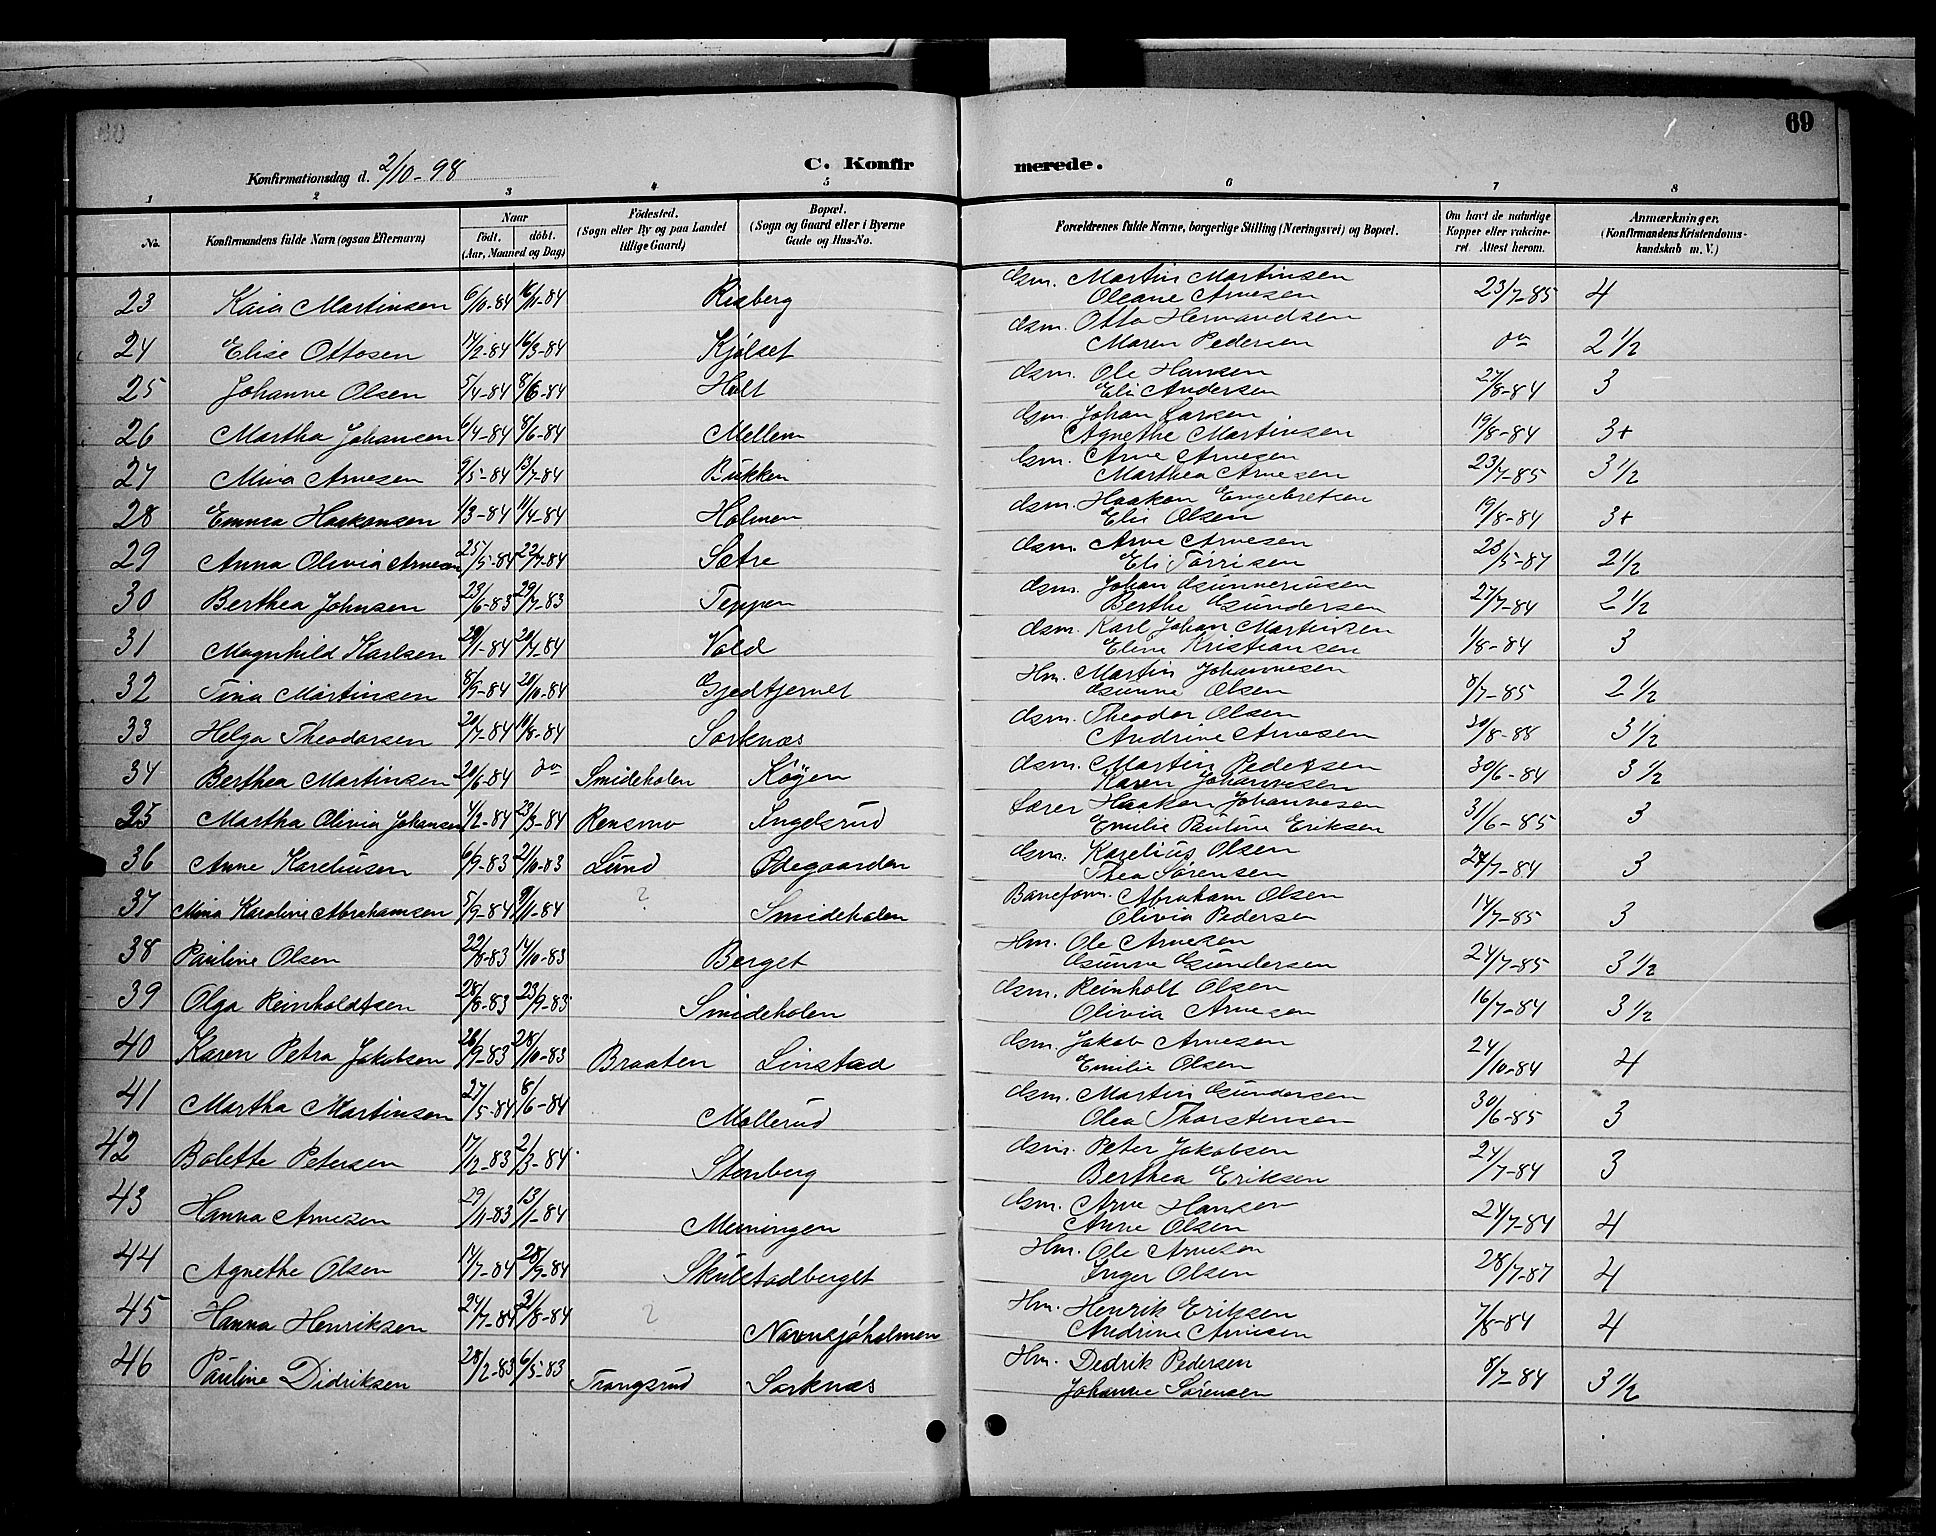 69
Konfirmationsdag d. 2/10-98
C. Konfirmerede.
1 2 3 4 5 6 7 8
No. Konfirmandens fulde Navn (ogsaa Efternavn) Naar födt. döbt. (Aar, Maaned og Dag) Födested. (Sogn eller By og paa Landet tillige Gaard) Bopæl. (Sogn og Gaard eller i Byerne Gade og Hus-No. Forældrenes fulde Navne, borgerlige Stilling (Næringsvei) og Bopæl. Om havt de naturlige Kopper eller vakcineret Attest herom. Anmærkninger. (Konfirmandens Kristendomskundskab m. V.)
23 Kaia Martinsen 6/10-84 16/11-84 Risberg Gsm. Martin Martinsen 23/7-85 4
Oleane Arnesen
24 Elise Ottosen 14/2-84 16/3-84 Kjölset Gsm. Otto Hermandsen do 2 1/2
Maren Pedersen
25 Johanne Olsen 5/4-84 8/6-84 Holt Gsm. Ole Hansen 27/8-84 3
Eli Andersen
26 Martha Johansen 6/4-84 8/6-84 Mellem Gsm. Johan Larsen 19/8-84 3+
Agnethe Martinsen
27 Mina Arnesen 9/5-84 13/7-84 Bukken Gsm. Arne Arnesen 23/7-85 3 1/2
Marthea Arnesen
28 Emma Haakonsen 1/3-84 11/4-84 Holmen Gsm. Haakon Engebretsen 19/8-84 3+
Elis Olsen
29 Anna Olivia Arnesen 25/5-84 22/7-84 Sætre Gsm. Arne Arnesen 23/5-87 2 1/2
Eli Törrisen
30 Berthea Johnsen 23/6-83 29/7-83 Teppen Gsm. Johan Gunneriusen 27/7-84 2 1/2
Berthe Gundersen
31 Magnhild Karlsen 29/1-84 20/4-84 Vold Gsm. Karl Johan Martinsen 1/8-84 3
Eline Kristiansen
32 Tina Martinsen 8/9-84 20/10-84 Gjedtjernet Hm. Martin Johannesen 8/7-85 2 1/2
Gunne Olsen
33 Helga Theodorsen 20/7-84 10/8-84 Sorknæs Gsm. Theodor Olsen 30/8-88 3 1/2
Andrine Arnesen
34 Berthea Martinsen 20/6-84 do Smideholen Köyen Gsm. Martin Pedersen 30/6-84 3 1/2
Karen Johannesen
35 Martha Olivia Johansen 4/2-84 23/3-84 Rensmo Ingelsrud Lærer Haakon Johannesen 31/6-85 3
Emilie Pauline Eriksen
36 Anne Kareliusen 6/9-83 21/10-83 Lund Ödegaarden Gsm. Karelius Olsen 24/7-84 3
Thea Sörensen
37 Mina Karoline Abrahamsen 5/9-84 9/11-84 ? Smideholen Baneform. Abraham Olsen 14/7-85 3
Olivia Pedersen
38 Pauline Olsen 22/8-83 14/10-83 Berget Hm. Ole Arnesen 24/7-85 3 1/2
Gunne Gundersen
39 Olga Reinholdtsen 28/8-83 23/9-83 Smideholen Gsm. Reinholt Olsen 16/7-84 3 1/2
Olivia Arnesen
40 Karen Petra Jakobsen 26/9-83 28/10-83 Braaten Linstad Gsm. Jakob Arnesen 24/10-84 4
Emilie Olsen
41 Martha Martinsen 27/5-84 8/6-84 Mollerud Gsm. Martin Gundersen 30/6-85 3
Olea Thorstensen
42 Bolette Petersen 7/12-83 2/3-84 Stenberg Gsm. Peter Jakobsen 24/7-84 3
Berthea Eriksen
43 Hanna Arnesen 29/11-83 13/1-84 Meiningen Gsm. Arne Hansen 24/7-84 4
Anne Olsen
44 Agnethe Olsen 14/7-84 28/9-84 Skulstadberget Hm. Ole Arnesen 28/7-87 4
Inger Olsen
45 Hanna Henriksen 24/7-84 31/8-84 ? Norensjöholmen Hm. Henrik Eriksen 7/8-84 4
Andrine Arnesen
46 Pauline Didriksen 28/2-83 6/5-83 Trangsrud Sorknæs Hm. Dedrik Pedersen 8/7-84 3 1/2
Johanne Sörensen